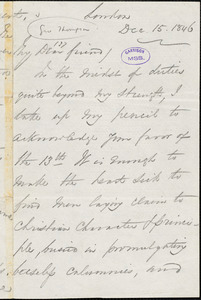 London
Geo Thompson
Dec. 15. 1846
My Dear friend,
In the midst of duties
quite beyond my strength, I
take up my pencil to
acknowledge your favor of
the 13th. It is enough to
make the heart sick to
find men laying claim to
Christian Character & princi-
ples, busied in promulgating
calumnies, and